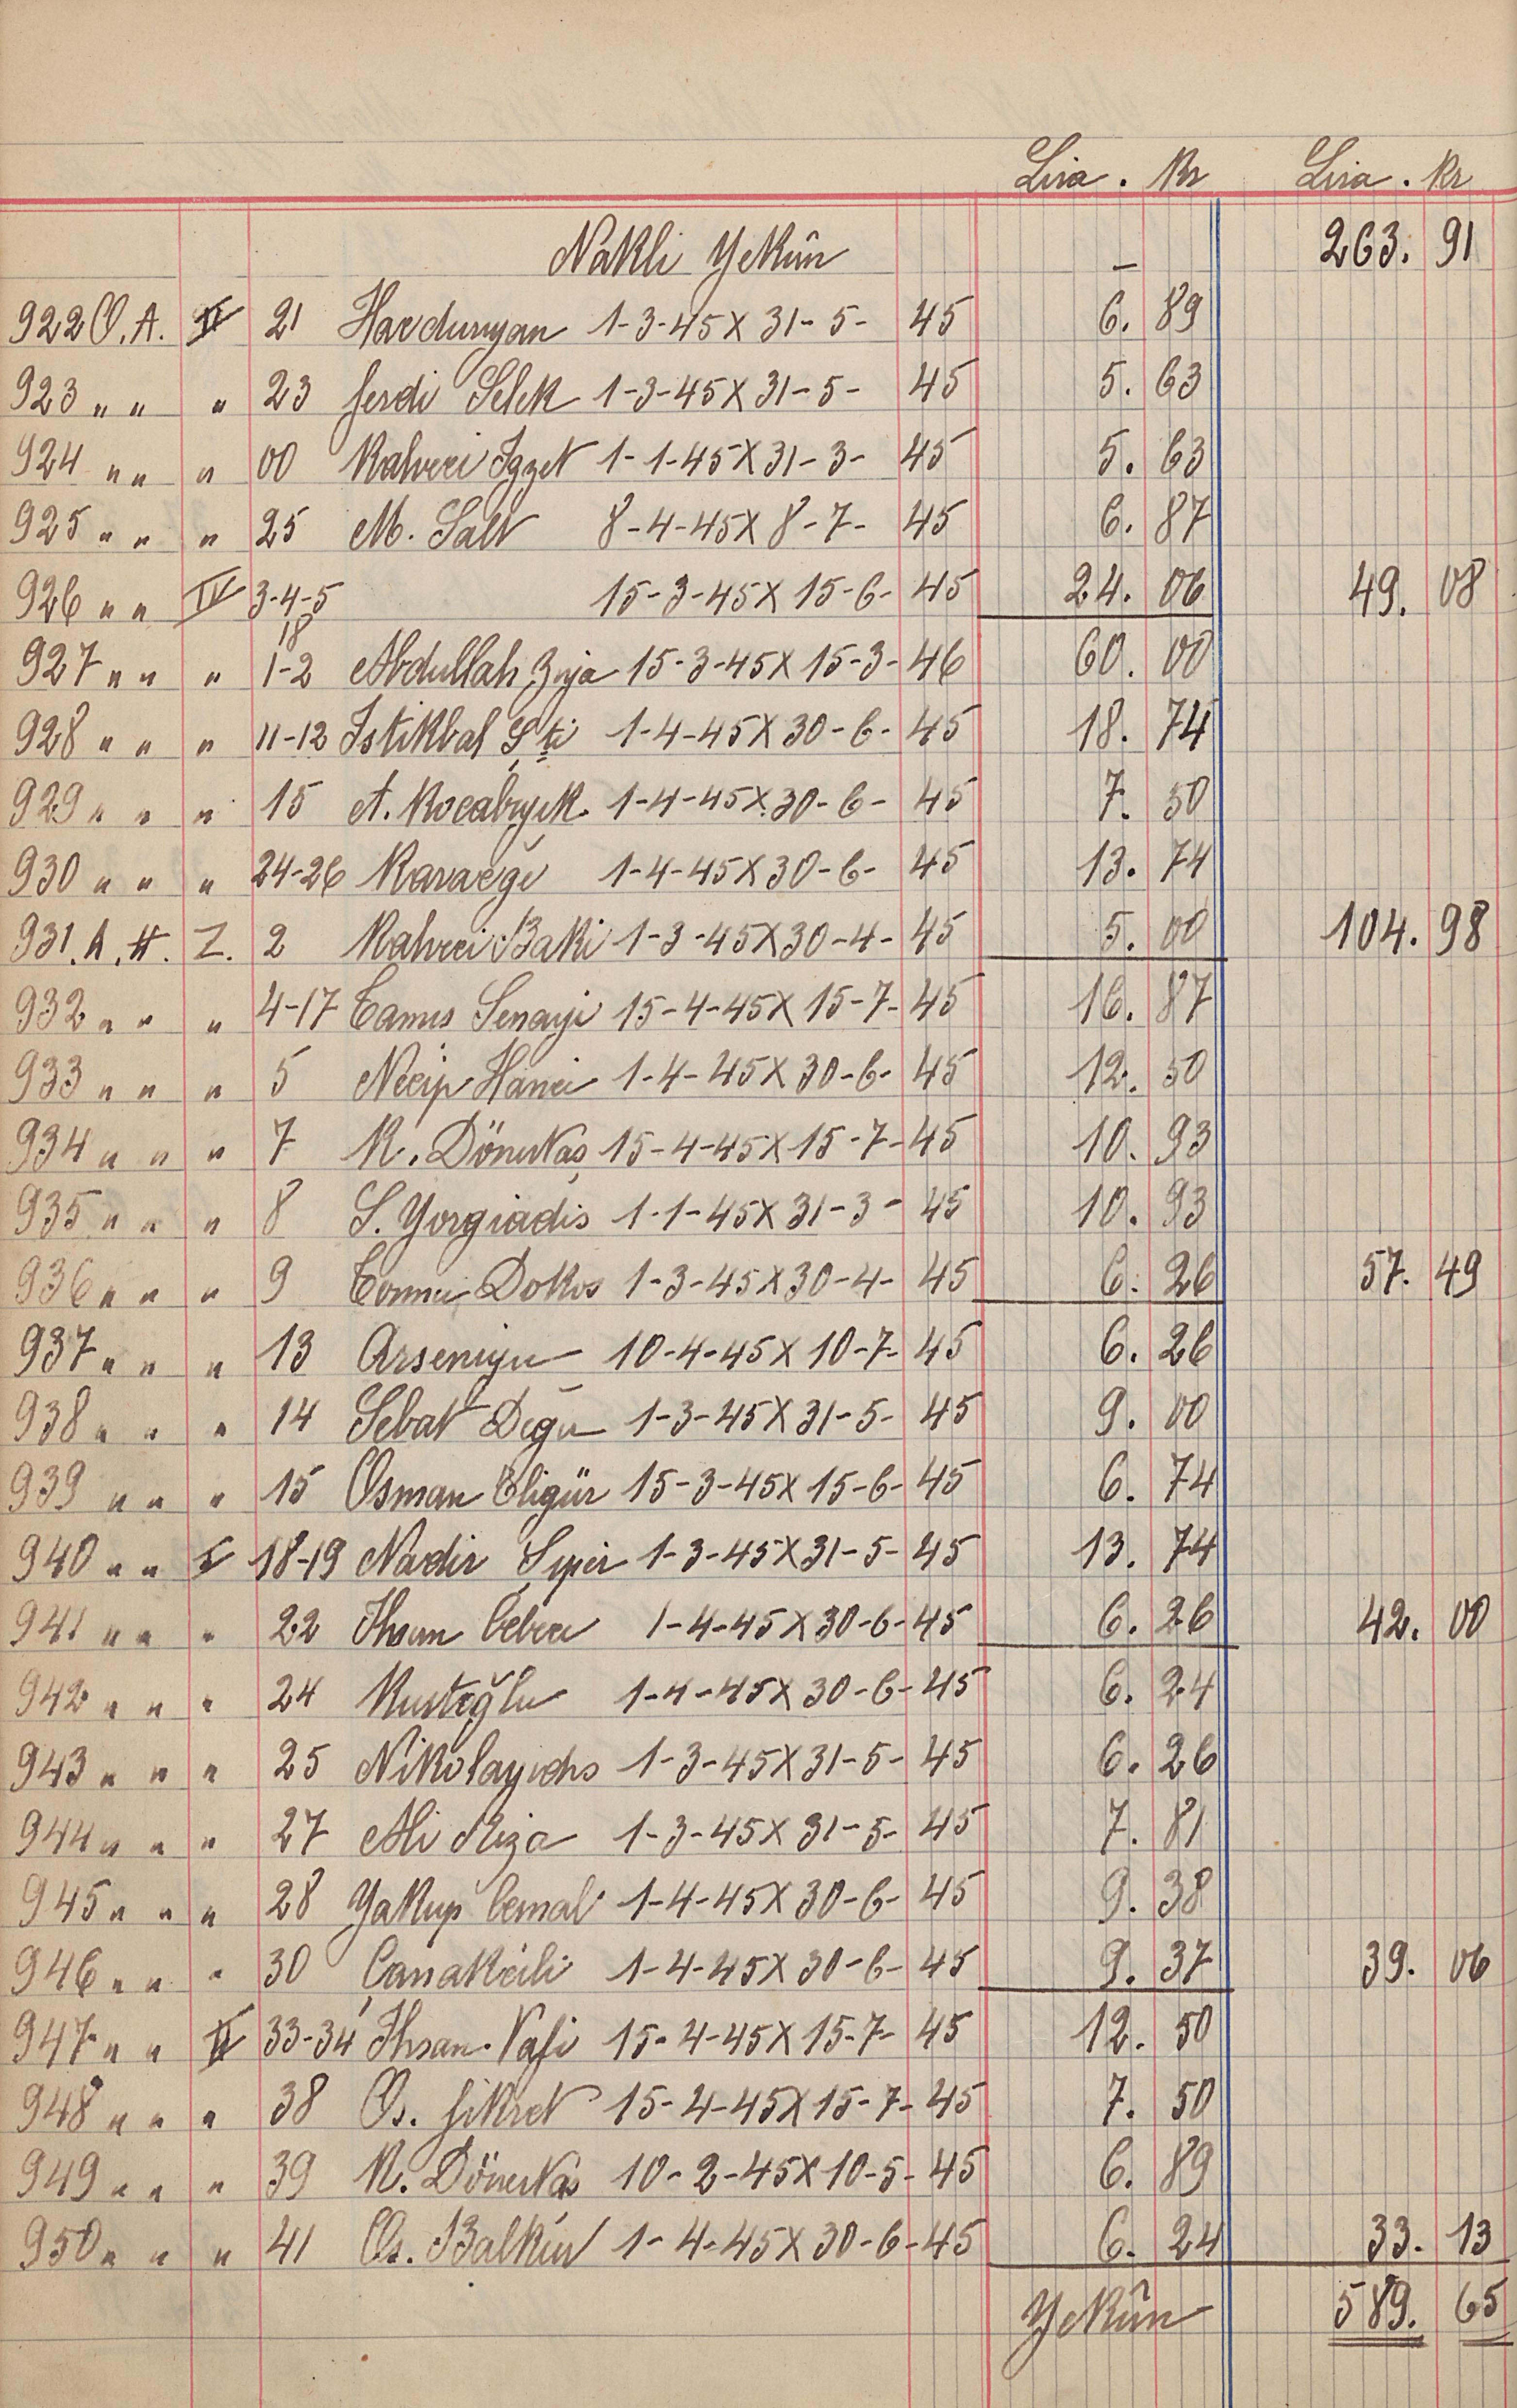 Lira . Kr Lira . Kr
Nakli Yekûn — 263. 91
922 O.A. II 21 Hardunyan 1-3-45 X 31-5- 45 6. 89
923 " " " 23 ferdi Selek 1-3-45 X 31-5- 45 5. 63
924 " " " 00 Kahveci Izzet 1-1-45 X 31-3- 45 5. 63
925 " " " 25 M. Salt 8-4-45 X 8-7- 45 6. 87
926 " " IV 3-4-5 15-3-45 X 15-6- 45 24. 06 49. 08
18
927 " " " 1-2 Abdullah Ziya 15-3-45 X 15-3- 46 60. 00
928 " " " 11-12 Istikbal Şti 1-4-45 X 30-6- 45 18. 74
929 " " " 15 A. Kocabıyık 1-4-45 X 30-6- 45 7. 50
930 " " " 24-26 1-4-45 X 30-6- 45 13. 74
931. A. H. Z. 2 Kahveci Baki 1-3-45 X 30-4- 45 5. 00 104. 98
932 " " " 4-17 Senayi 15-4-45 X 15-7- 45 16. 87
933 " " " 5 Necip Hanci 1-4-45 X 30-6- 45 12. 50
934 " " " 7 K. Dönertaş 15-4-45 X 15-7- 45 10. 93
935 " " " 8 S. Yorgiadis 1-1-45 X 31-3- 45 10. 93
936 " " " 9 Dokos 1-3-45 X 30-4- 45 6. 26 57. 49
937 " " " 13 10-4-45 X 10-7- 45 6. 26
938 " " " 14 Sebat 1-3-45 X 31-5- 45 9. 00
939 " " " 15 Osman Eligür 15-3-45 X 15-6- 45 6. 74
940 " " I 18-19 Nadir 1-3-45 X 31-5- 45 13. 74
941 " " " 22 Ihsan 1-4-45 X 30-6- 45 6. 26 42. 00
942 " " " 24 Kurtoğlu 1-4-45 X 30-6- 45 6. 24
943 " " " 25 Nikolayidis 1-3-45 X 31-5- 45 6. 26
944 " " " 27 Ali Riza 1-3-45 X 31-5- 45 7. 81
945 " " " 28 Yakup Cemal 1-4-45 X 30-6- 45 9. 38
946 " " " 30 Çanakcili 1-4-45 X 30-6- 45 9. 37 39. 06
947 " " II 33-34 Ihsan. Vafi 15-4-45 X 15-7- 45 12. 50
948 " " " 38 Os. fikret 15-4-45 X 15-7- 45 7. 50
949 " " " 39 K. Dönertaş 10-2-45 X 10-5- 45 6. 89
950 " " " 41 Os. Balkın 1-4-45 X 30-6- 45 6. 24 33. 13
Yekûn 589. 65